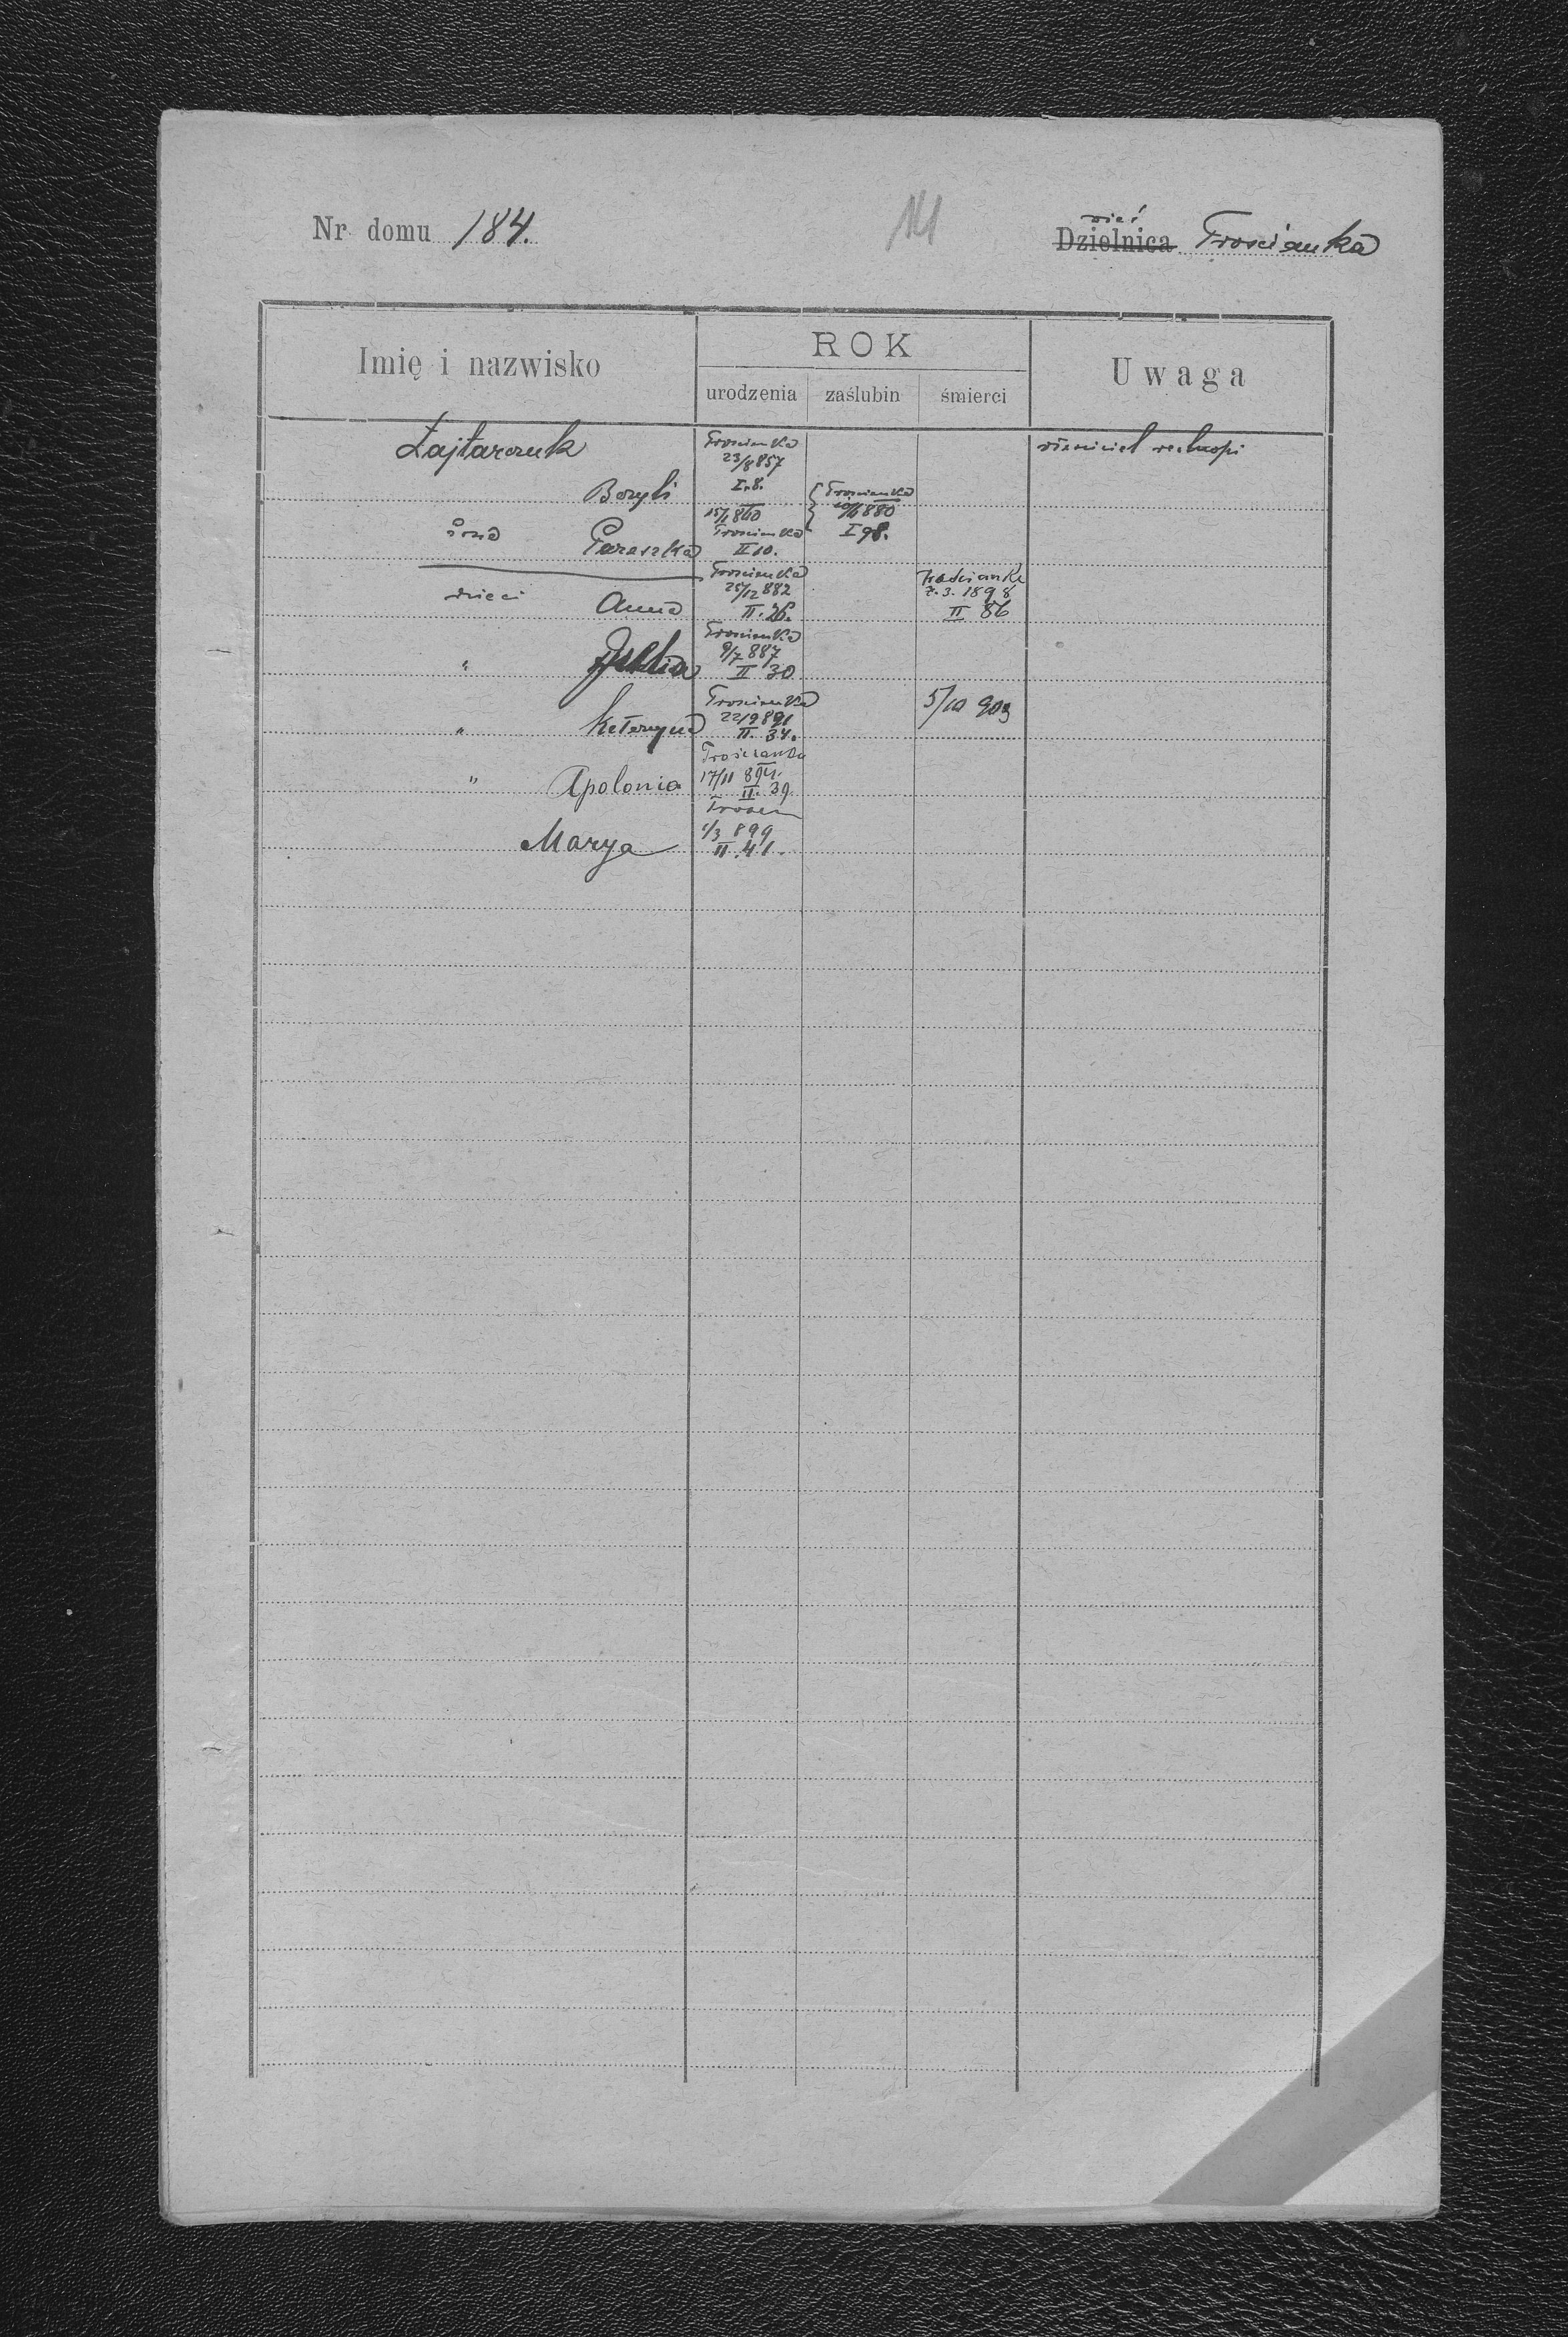 Nr domu 184.
141
wieś
Dzielnica Troscianka
Imię i nazwisko
ROK
urodzenia zaślubin śmierci
Uwaga
Łajtarczuk
Troscianka
23/8 857
I. 8.
Bazyli
Troscianka
880
I 98.
żona Paraszka
15/1 860
Troscianka
II 10.
dzieci Anna
Troscianka
25/12 882
II. 26.
Trościanka
7. 3. 1898
II 86
" Julia
Troscianka
9/7 887
II 30
" Katarzyna
Troscianka
22/9 891
II. 34.
5/10 903
" Apolonia
Trościanka
17/11 894.
II. 39
Marya
Trościan
1/3 899
II. 41.